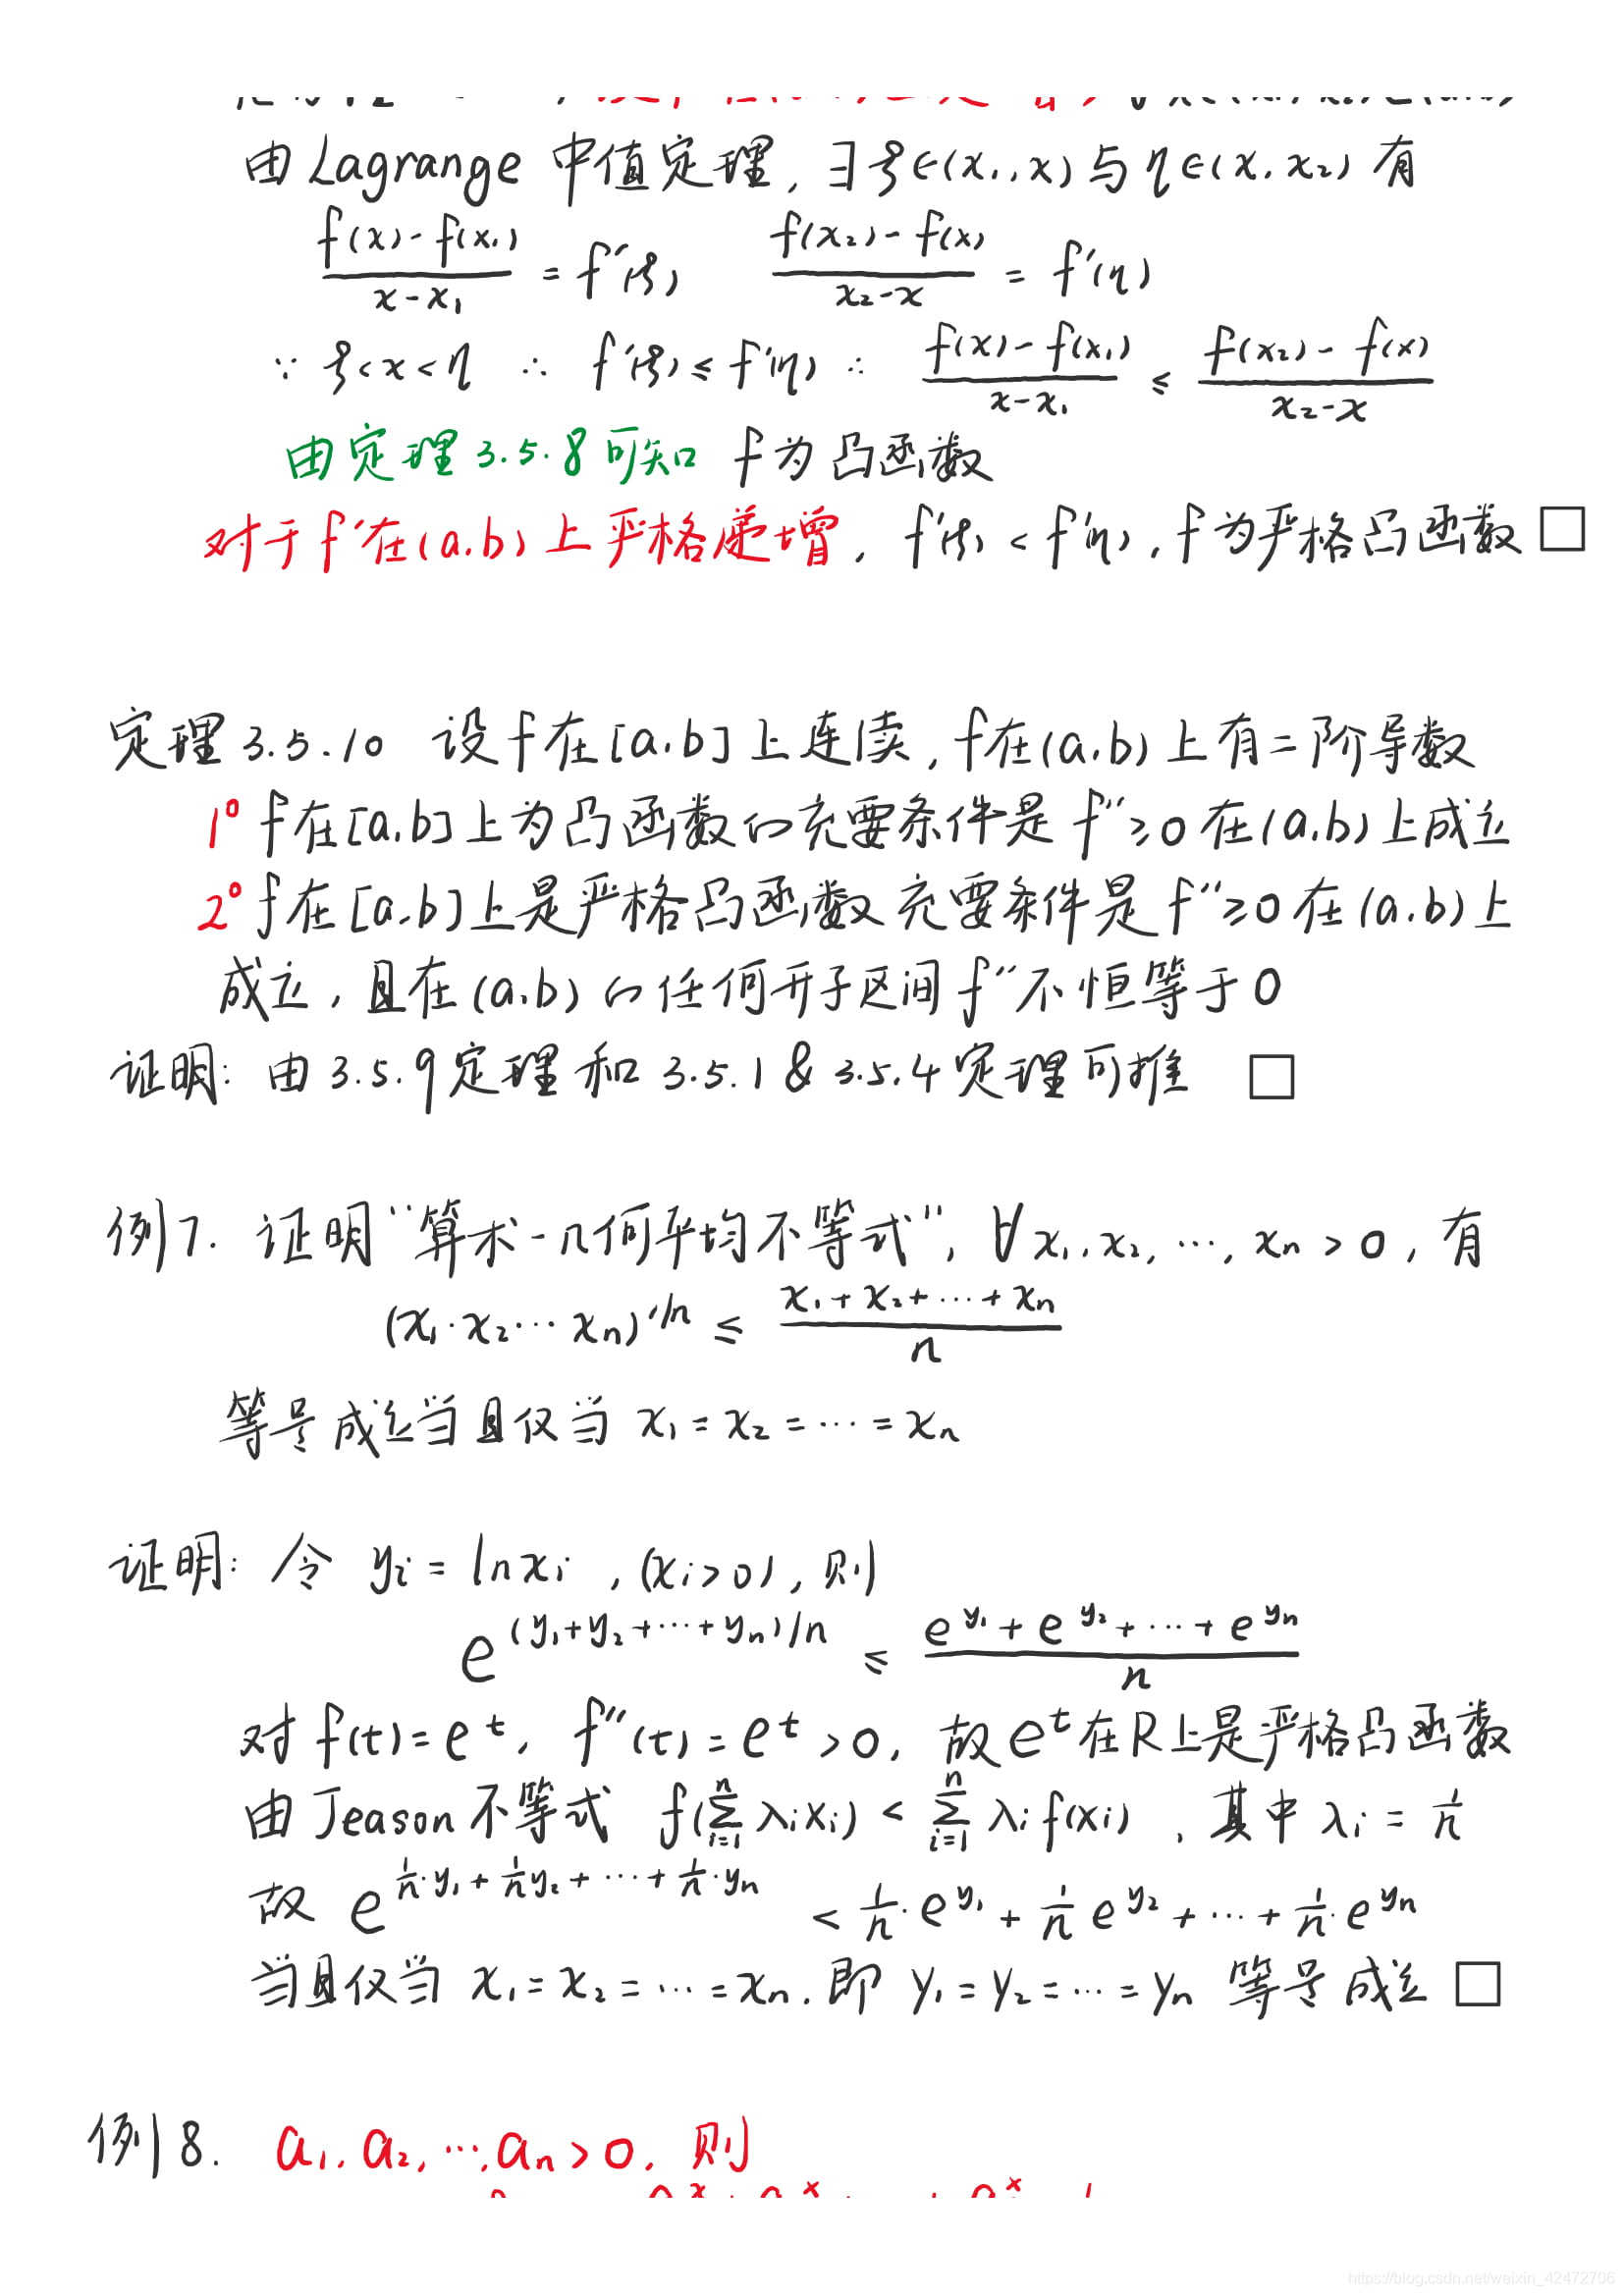 由 Lagrange 中值定理, ∃ξ∈(x₁,x) 与 η∈(x,x₂) 有
(f(x)-f(x₁))/(x-x₁) = f'(ξ)  (f(x₂)-f(x))/(x₂-x) = f'(η)
∵ ξ<x<η ∴ f'(ξ)≤f'(η) ∴ (f(x)-f(x₁))/(x-x₁) ≤ (f(x₂)-f(x))/(x₂-x)
由定理3.5.8可知 f为凸函数
对于f'在(a.b)上严格递增, f'(ξ)<f'(η), f为严格凸函数 □
定理3.5.10 设f在[a.b]上连续, f在(a.b)上有二阶导数
1° f在[a.b]上为凸函数的充要条件是 f''≥0 在(a.b)上成立
2° f在[a.b]上是严格凸函数充要条件是 f''≥0 在(a.b)上
成立, 且在(a.b)的任何开子区间 f''不恒等于0
证明: 由3.5.9定理和3.5.1&3.5.4定理可推 □
例7. 证明"算术-几何平均不等式", ∀x₁,x₂,…,xₙ>0, 有
(x₁·x₂…xₙ)^(1/n) ≤ (x₁+x₂+…+xₙ)/n
等号成立当且仅当 x₁=x₂=…=xₙ
证明: 令 yᵢ=lnxᵢ, (xᵢ>0), 则
e^((y₁+y₂+…+yₙ)/n) ≤ (e^y₁+e^y₂+…+e^yₙ)/n
对 f(t)=e^t, f''(t)=e^t>0, 故e^t在R上是严格凸函数
由Jeason不等式 f(∑_{i=1}^n λᵢxᵢ) < ∑_{i=1}^n λᵢf(xᵢ), 其中 λᵢ=1/n
故 e^(1/n·y₁+1/n y₂+…+1/n·yₙ) < 1/n·e^y₁+1/n e^y₂+…+1/n·e^yₙ
当且仅当 x₁=x₂=…=xₙ.即 y₁=y₂=…=yₙ 等号成立 □
例8. a₁,a₂,…,aₙ>0, 则
https://blog.csdn.net/weixin_42472706